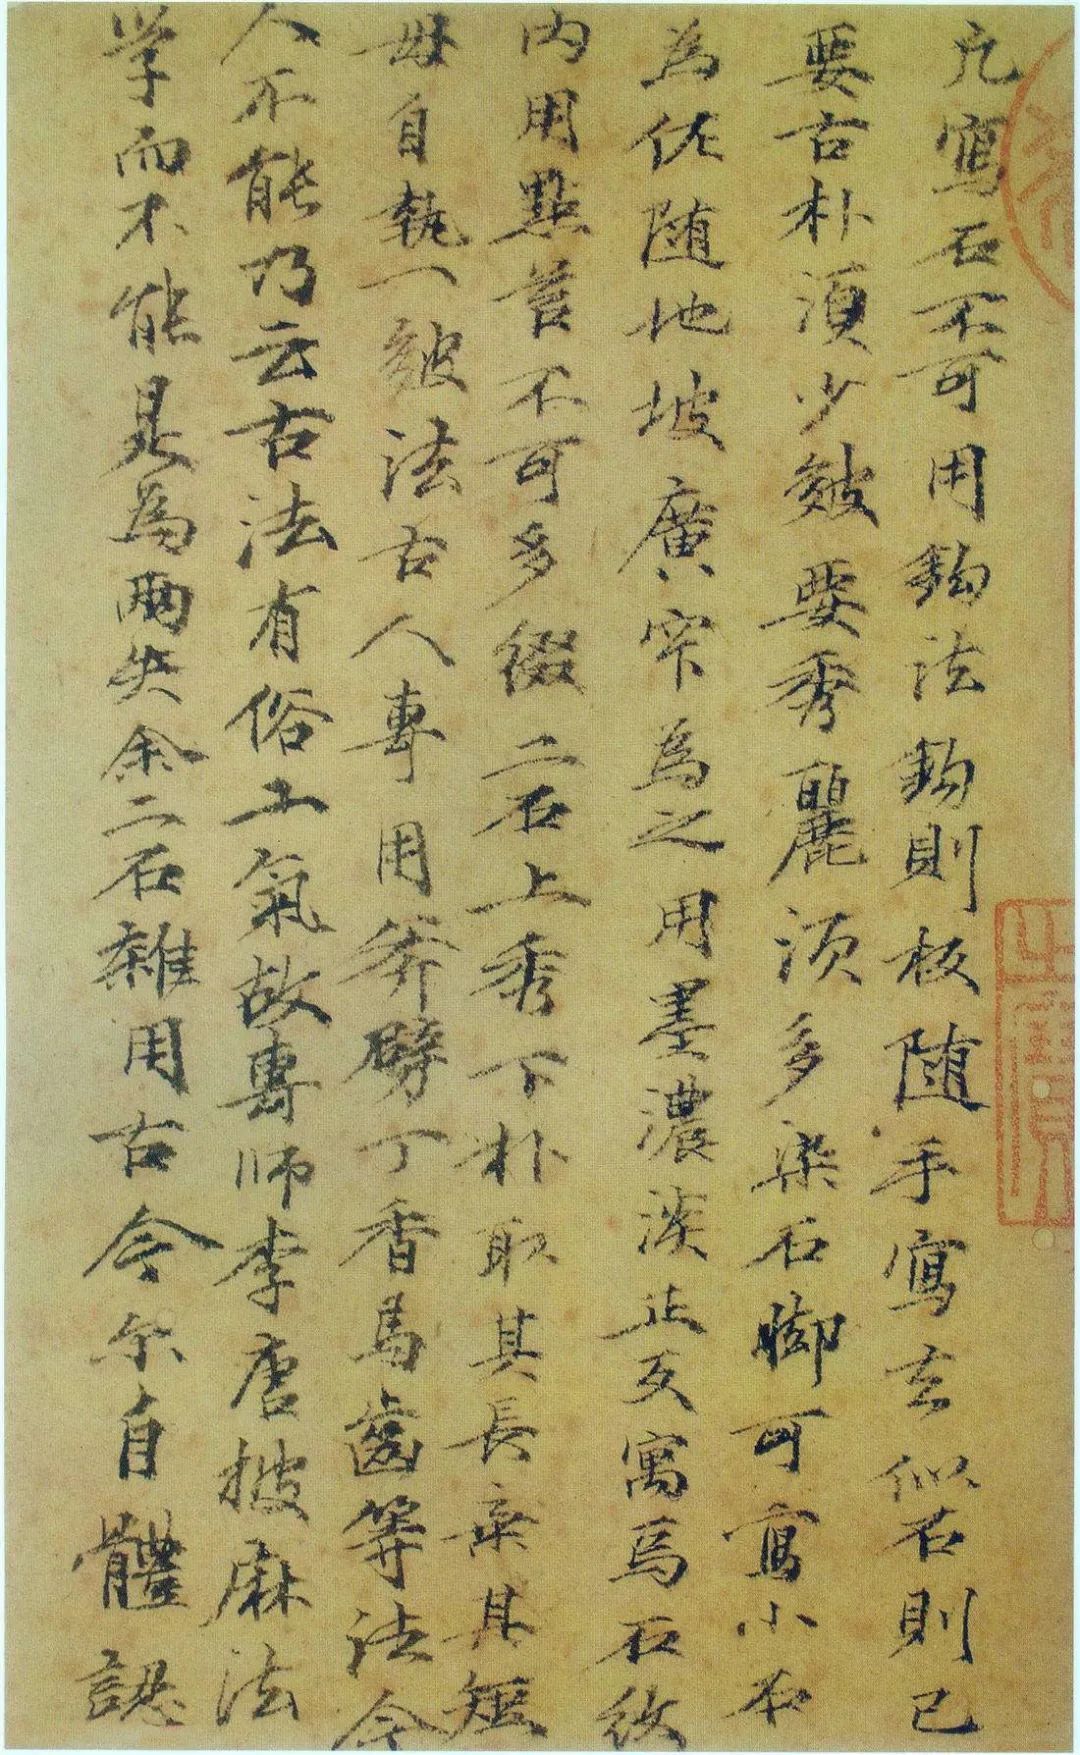 凢寫石不可用鈎法鈎則板随手寫去似石則已
要古朴須少皴要秀麗須多染石脚可寫小石
為佐随地坡廣窄為之用墨濃淡正反寓焉石紋
内用點苔不可多綴二石上秀下朴取其長棄其短
毋自執一皴法古人專用斧劈丁香馬齒等法今
人不能乃云古法有俗工氣故專師李唐披麻法
学而不能是為兩失余二石雜用古今尔自體認